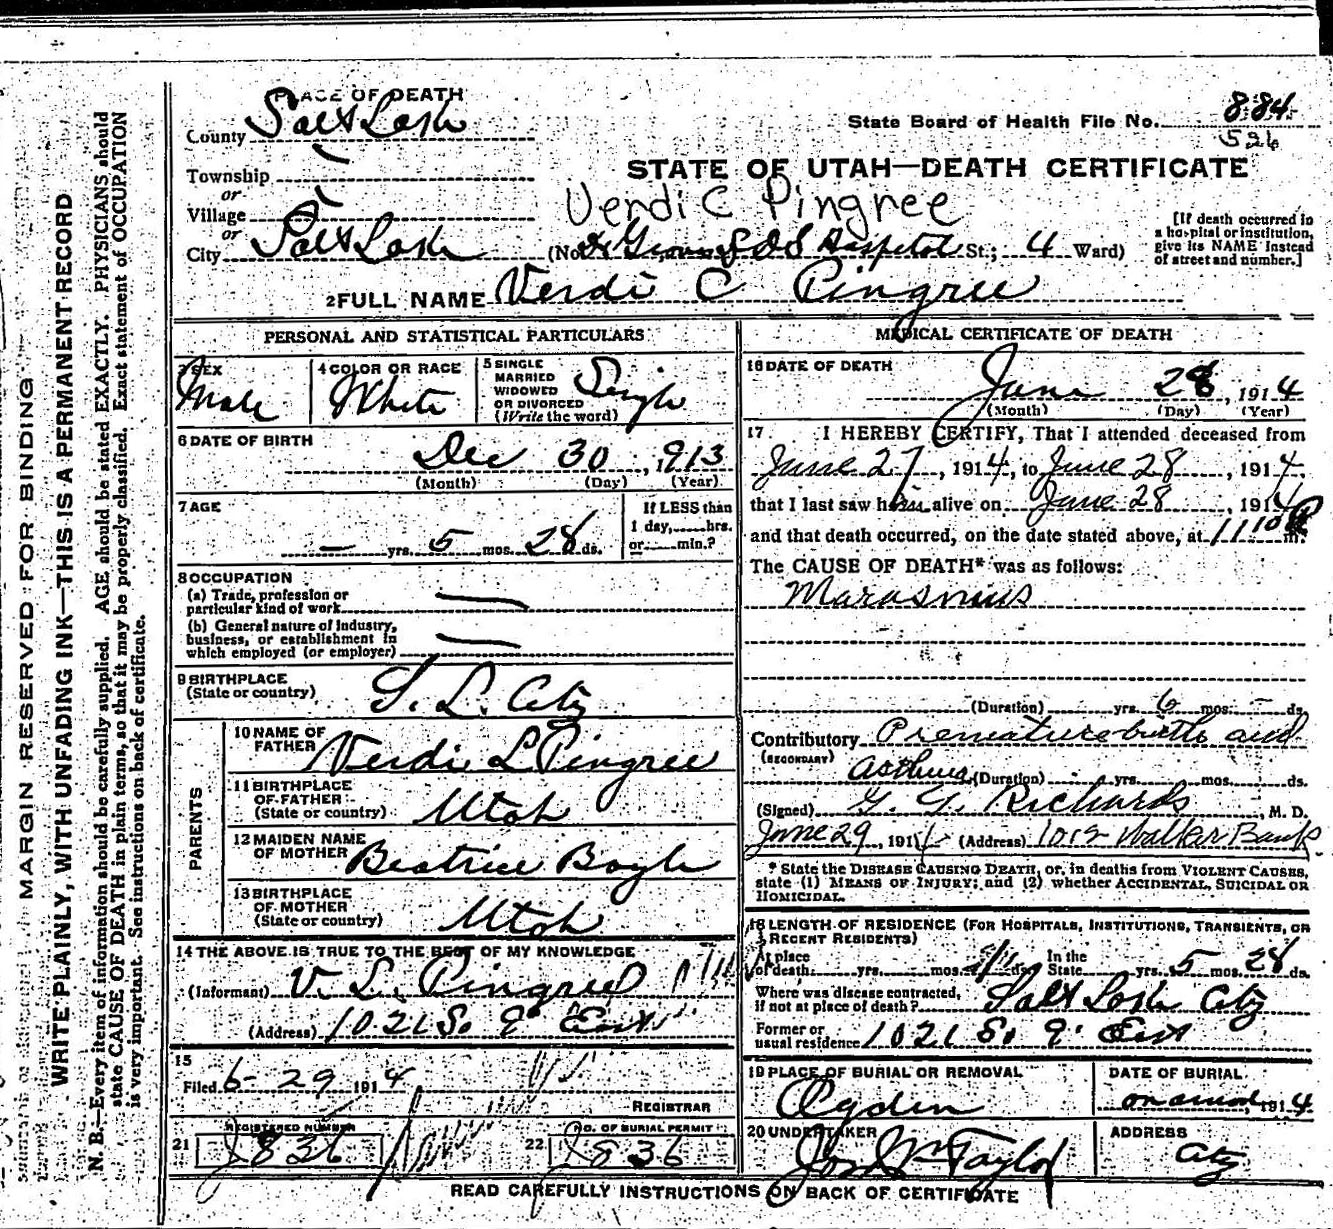 MARGIN RESERVED FOR BINDING
WRITE PLAINLY, WITH UNFADING INK—THIS IS A PERMANENT RECORD
N. B.—Every item of information should be carefully supplied. AGE should be stated EXACTLY. PHYSICIANS should
state CAUSE OF DEATH in plain terms, so that it may be properly classified. Exact statement of OCCUPATION
is very important. See instructions on back of certificate.
PLACE OF DEATH
County Salt Lake
Township
or
Village
or
City Salt Lake
State Board of Health File No. 884
526
STATE OF UTAH—DEATH CERTIFICATE
Verdi C Pingree
(No. L D S Hospital St.; 4 Ward)
[If death occurred in
a hospital or institution,
give its NAME instead
of street and number.]
2 FULL NAME Verdi C Pingree
PERSONAL AND STATISTICAL PARTICULARS
3 SEX
Male
4 COLOR OR RACE
White
5 SINGLE
MARRIED
WIDOWED
OR DIVORCED
(Write the word)
Single
6 DATE OF BIRTH
Dec 30, 1913
(Month) (Day) (Year)
7 AGE
— yrs. 5 mos. 28 ds.
If LESS than
1 day, hrs.
or min.?
8 OCCUPATION
(a) Trade, profession or
particular kind of work —
(b) General nature of industry,
business, or establishment in
which employed (or employer) —
9 BIRTHPLACE
(State or country) S. L. City
PARENTS
10 NAME OF
FATHER Verdi L Pingree
11 BIRTHPLACE
OF FATHER
(State or country) Utah
12 MAIDEN NAME
OF MOTHER Beatrice Boyle
13 BIRTHPLACE
OF MOTHER
(State or country) Utah
14 THE ABOVE IS TRUE TO THE BEST OF MY KNOWLEDGE
(Informant) V. L. Pingree
(Address) 1021 So 9" East
15
Filed 6-29 1914
REGISTRAR
REGISTERED NUMBER
21 J836
NO. OF BURIAL PERMIT
22 J836
MEDICAL CERTIFICATE OF DEATH
16 DATE OF DEATH
June 28, 1914
(Month) (Day) (Year)
17 I HEREBY CERTIFY, That I attended deceased from
June 27, 1914, to June 28, 1914
that I last saw him alive on June 28, 1914
and that death occurred, on the date stated above, at 1110 P m.
The CAUSE OF DEATH* was as follows:
Marasmus
(Duration) yrs. 6 mos. — ds.
Contributory Premature birth and
(SECONDARY) asthma (Duration) yrs. mos. ds.
(Signed) G. G. Richards, M. D.
June 29, 1914 (Address) 1012 Walker Bank
* State the DISEASE CAUSING DEATH, or, in deaths from VIOLENT CAUSES,
state (1) MEANS OF INJURY; and (2) whether ACCIDENTAL, SUICIDAL OR
HOMICIDAL.
18 LENGTH OF RESIDENCE (FOR HOSPITALS, INSTITUTIONS, TRANSIENTS, OR
RECENT RESIDENTS)
At place
of death yrs. mos. ds. In the
State yrs. 5 mos. 28 ds.
Where was disease contracted,
if not at place of death? Salt Lake City
Former or
usual residence 1021 So 9" East
19 PLACE OF BURIAL OR REMOVAL
Ogden
DATE OF BURIAL
on arrival, 1914
20 UNDERTAKER
Jos Wm Taylor
ADDRESS
City
READ CAREFULLY INSTRUCTIONS ON BACK OF CERTIFICATE